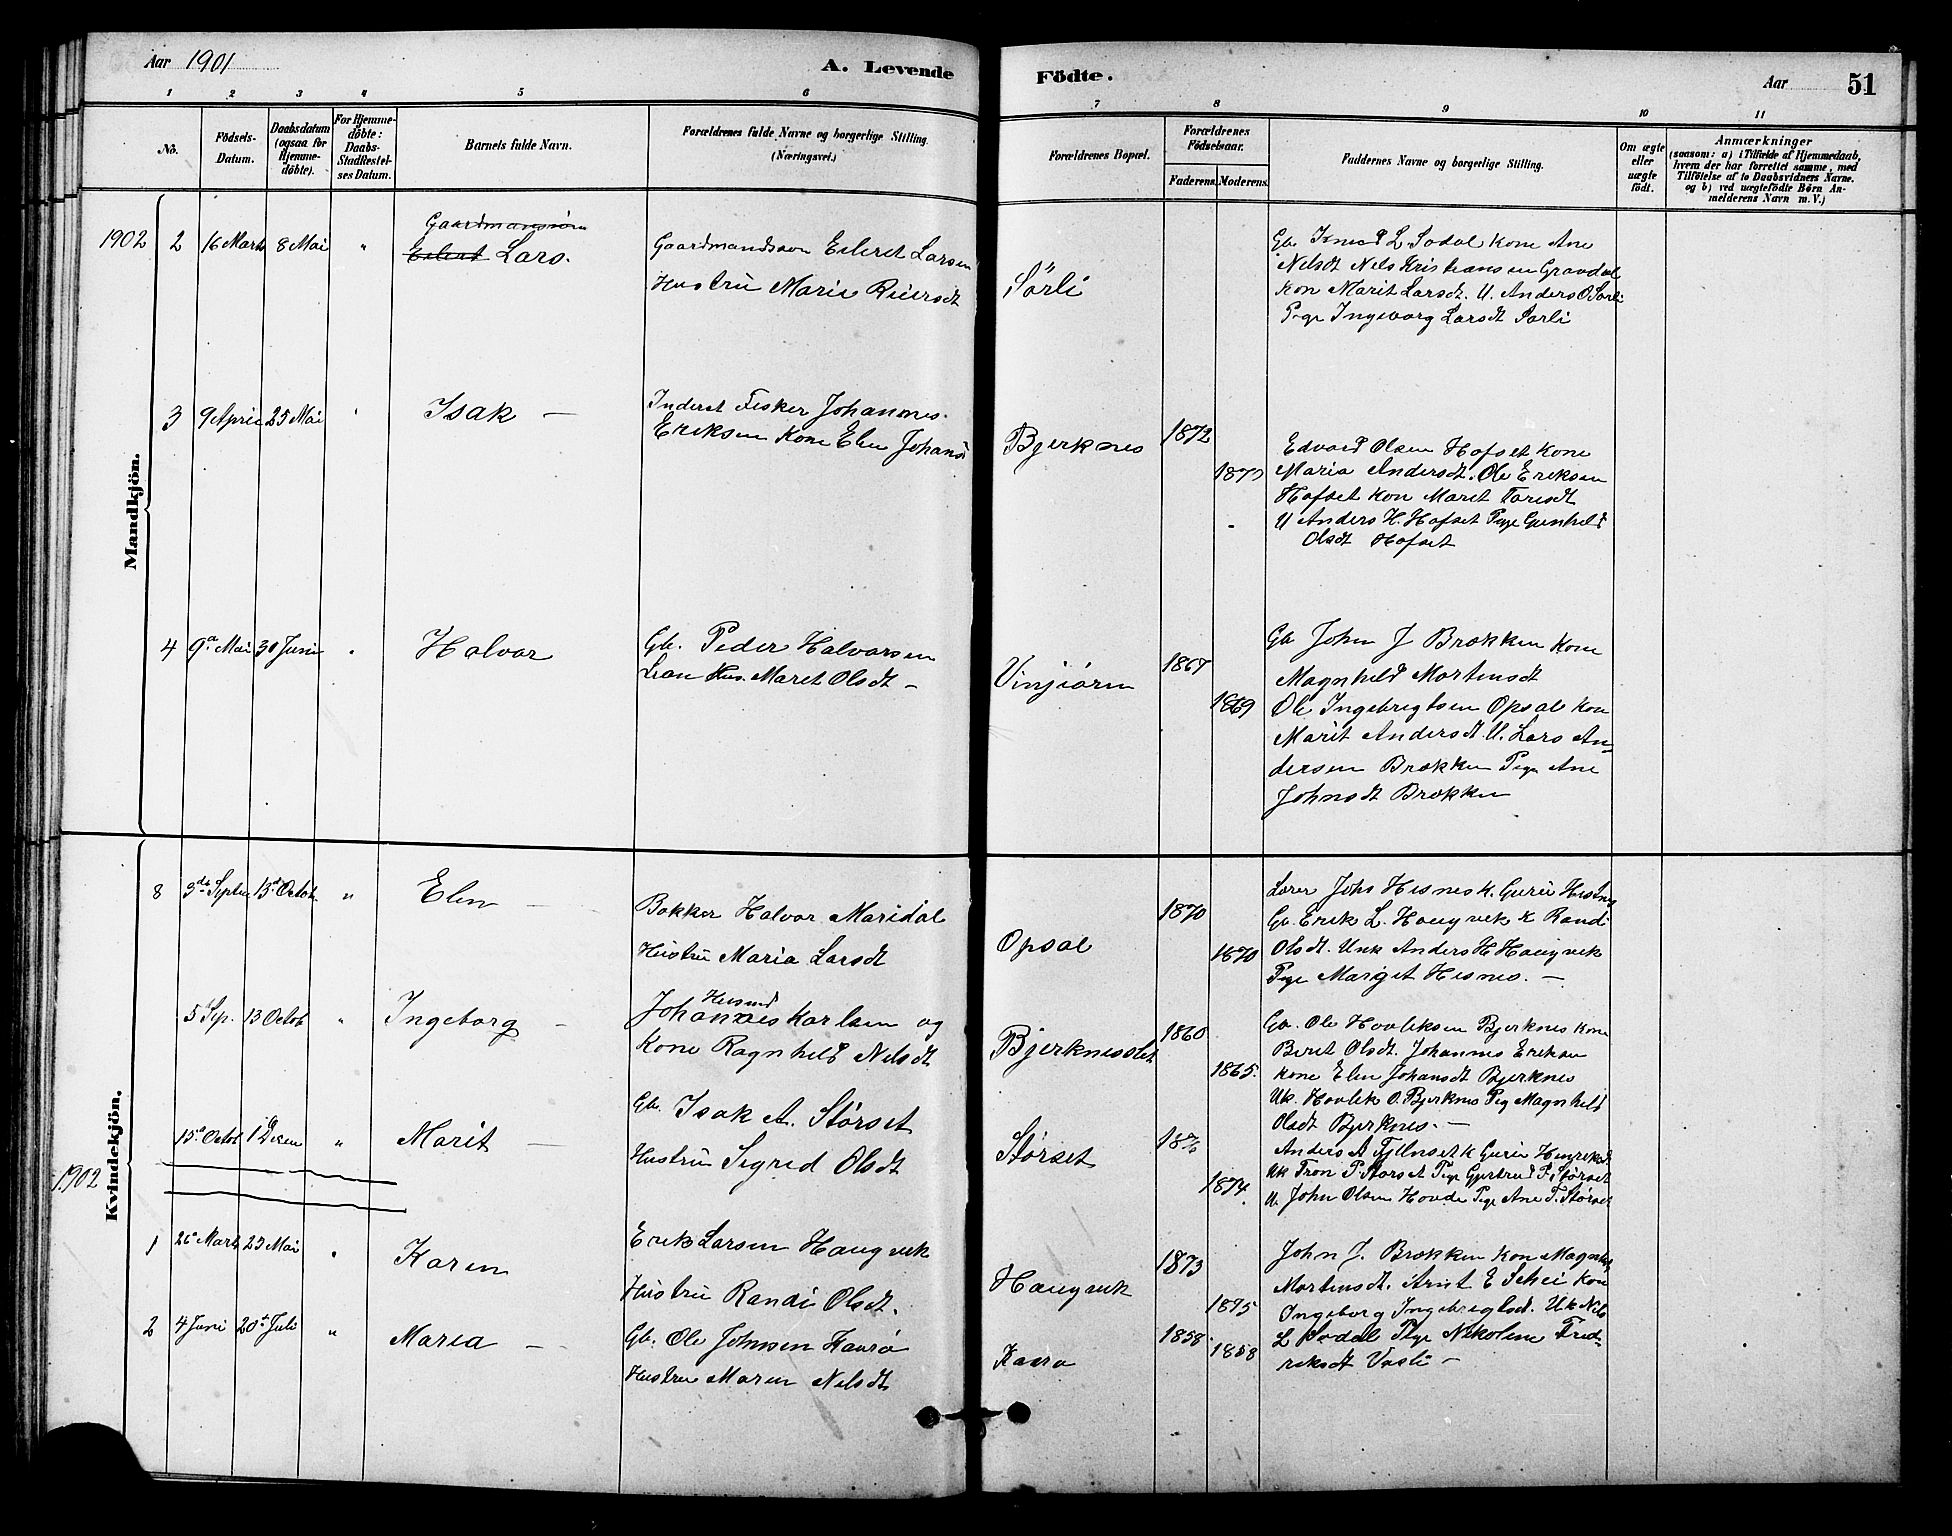 Aar 1901
A. Levende Födte.
Aar
51
1 2 3 4 5 6 7 8 9 10 11
No.
Födsels-
Datum.
Daabsdatum
(ogsaa for
Hjemme-
döbte).
For Hjemme-
döbte:
Daabs-
Stadfestel-
ses Datum.
Barnets fulde Navn.
Forældrenes fulde Navne og borgerlige Stilling.
(Næringsvei.)
Forældrenes Bopæl.
Forældrenes
Födselsaar.
Faderens. Moderens.
Faddernes Navne og borgerlige Stilling.
Om ægte
eller
uægte
födt.
Anmærkninger
(saasom: a) i Tilfælde af Hjemmedaab,
hvem der har forrettet samme, med
Tilföielse af to Daabsvidners Navne.
og b) ved uægtefödte Börn An-
melderens Navn m.V.)
Mandkjön.
1902 2 16 Marts 8 Mai "
Gaardmandssøn
Eilert Lars.
Gaardmandssøn Eileret Larsen
Hustru Marie Reiersdt
Sörli
Gb. L Sodal Kone Ane
Nelsdt Nels Kristiansen Gravdal
Kon Marit Larsdt. U. Anders O Sørli
Pige Ingeborg Larsdt Sørli
3 9 April 25 Mai
Isak —
Inderst Fisker Johannes
Eriksen Kone Elen Johansd
Bjerknes 1872
Edvard Olsen Hofset Kone
Maria Andersdt. Ole Eriksen
Hofset Kon Maret Toresdt
U Anders H. Hofset Pige Gunhild
Olsdt Hofset
4 9de Mai 30 Juni
Halvor
Gb. Peder Halvorsen
Lian Hus. Maret Olsdt —
Vinjeörn 1867
1869
Gb John J Brækken Kone
Magnhild Mortensdt
Ole Ingebrigtsen Opsal Kon
Marit Andersdt U. Lars An-
dersen Brækken Pige Ane
Johnsdt Brækken
Kvindekjön.
8 3de Septbr 13de Octob. "
Elen —
Bakker Halvor Maridal
Hustru Maria Larsdt
Opsal 1870
1870
Lærer Johs Hesnes K. Guru Hesnes
Gb. Erik L. Haugvik K Randi
Olsdt. Unk Anders H Haugvik
Pige Marget Hesnes. —
5 Sep. 13 Octob "
Ingeborg —
Husmd
Johannes Karlsen og
Kone Ragnhild Nelsdt
Bjerknesslet 1860
1865.
Gb. Ole Hovleksen Bjerknes Kone
Beret Olsdt. Johannes Eriksen
Kone Elen Johansdt Bjerknes
Uk. Hovlek O. Bjerknes Pig Magnhild
Olsdt Bjerknes. —
15de Octob 1 Decem "
Marit —
Gb. Isak A. Størset
Hustru Sigrid Olsdt
Størset
1874.
Anders A Fjelnset K Guru Henriksd
Uk Tron P. Størset Pige Gjertrud P. Størset
U. John Olsen Hovde Pige Ane T. Størset
1902
1 26de Marts 25 Mai
Karen
Erik Larsen Haugvik
Hustru Randi Olsdt.
Haugvik 1873
1875
John J. Brækken Kon Magnhild
Mortensdt. Arnt E Schei Kon
Ingeborg Ingebrigtsdt. Uk Nils
L Sodal Pige Nikoline Fred-
riksdt Vasli —
2 4 Juni 20de Juli "
Maria —
Gb. Ole Johnsen Kaurø
Hustru Maren Nelsdt
Kaurø 1858. 1858